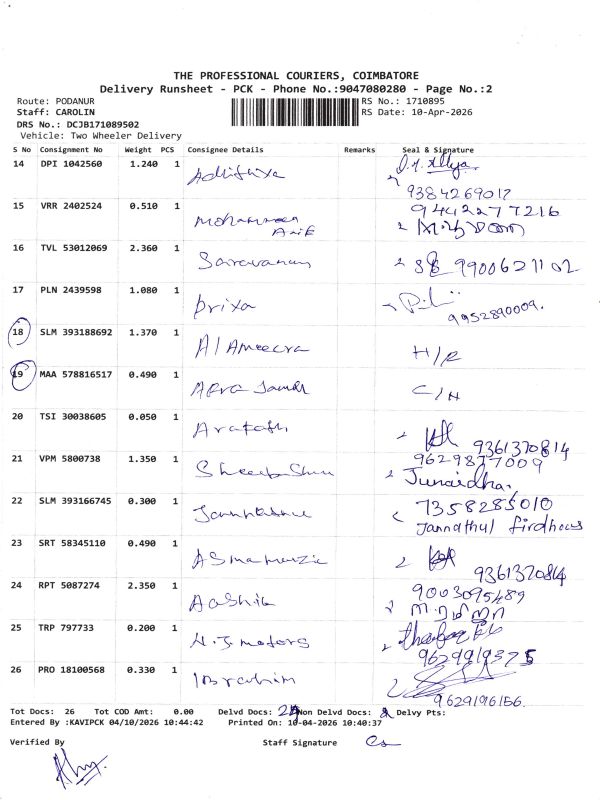 THE PROFESSIONAL COURIERS, COIMBATORE
Delivery Runsheet - PCK - Phone No.:9047080280 - Page No.:2
Route: PODANUR RS No.: 1710895
Staff: CAROLIN RS Date: 10-Apr-2026
DRS No.: DCJB171089502
Vehicle: Two Wheeler Delivery
S No Consignment No Weight PCS Consignee Details Remarks Seal & Signature
14 DPI 1042560 1.240 1 Adhithya
9384269017
15 VRR 2402524 0.510 1 Mohammeea 9442277216
Arif
16 TVL 53012069 2.360 1 Saravanan 9900621102
17 PLN 2439598 1.080 1 Priya
9952890009.
18 SLM 393188692 1.370 1 Al Ameera H/R
19 MAA 578816517 0.490 1 C/H
20 TSI 30038605 0.050 1 Arafath 9361370814
21 VPM 5800738 1.350 1 9629877009
Junaidha.
22 SLM 393166745 0.300 1 7358285010
Jannathul firdhous
23 SRT 58345110 0.490 1
9361370814
24 RPT 5087274 2.350 1 Aashik 9003095489
25 TRP 797733 0.200 1 N.J motors
9629919375
26 PRO 18100568 0.330 1 Ibrahim
9629196156.
Tot Docs: 26 Tot COD Amt: 0.00 Delvd Docs: Non Delvd Docs: Delvy Pts:
Entered By :KAVIPCK 04/10/2026 10:44:42 Printed On: 10-04-2026 10:40:37
Verified By Staff Signature